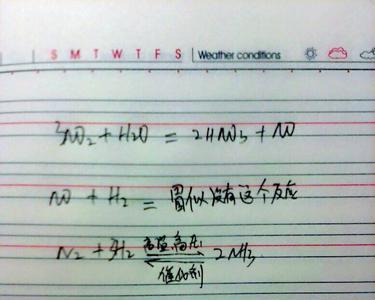 S M T W T F S Weather conditions
3NO2 + H2O = 2HNO3 + NO
NO + H2 = 似没有这个反应
N2 + 3H2 高温高压 催化剂 2NH3